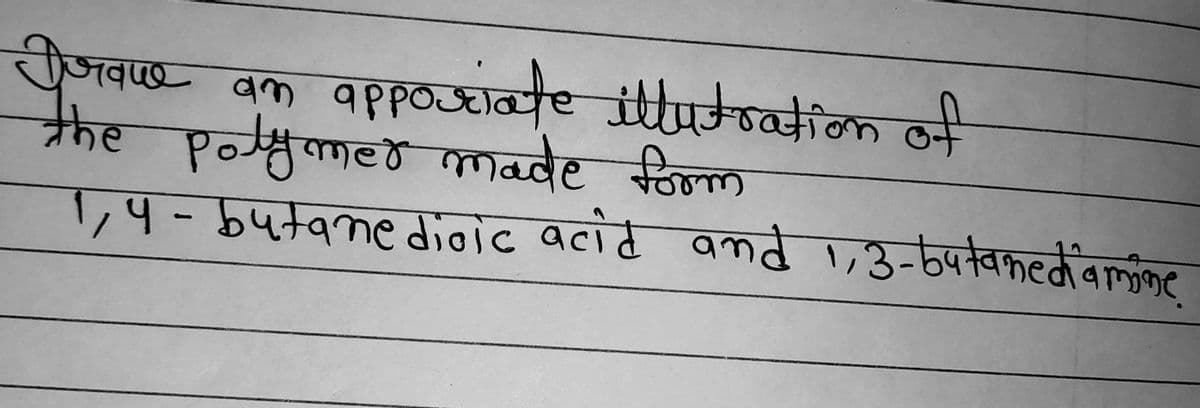 Draw an apporiate illutration of
the polymer made form
1,4-butanedioic acid and 1,3-butanediamine.